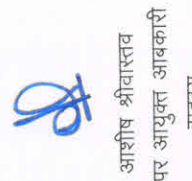 आशीष श्रीवास्तव
पर आयुक्त आबकारी